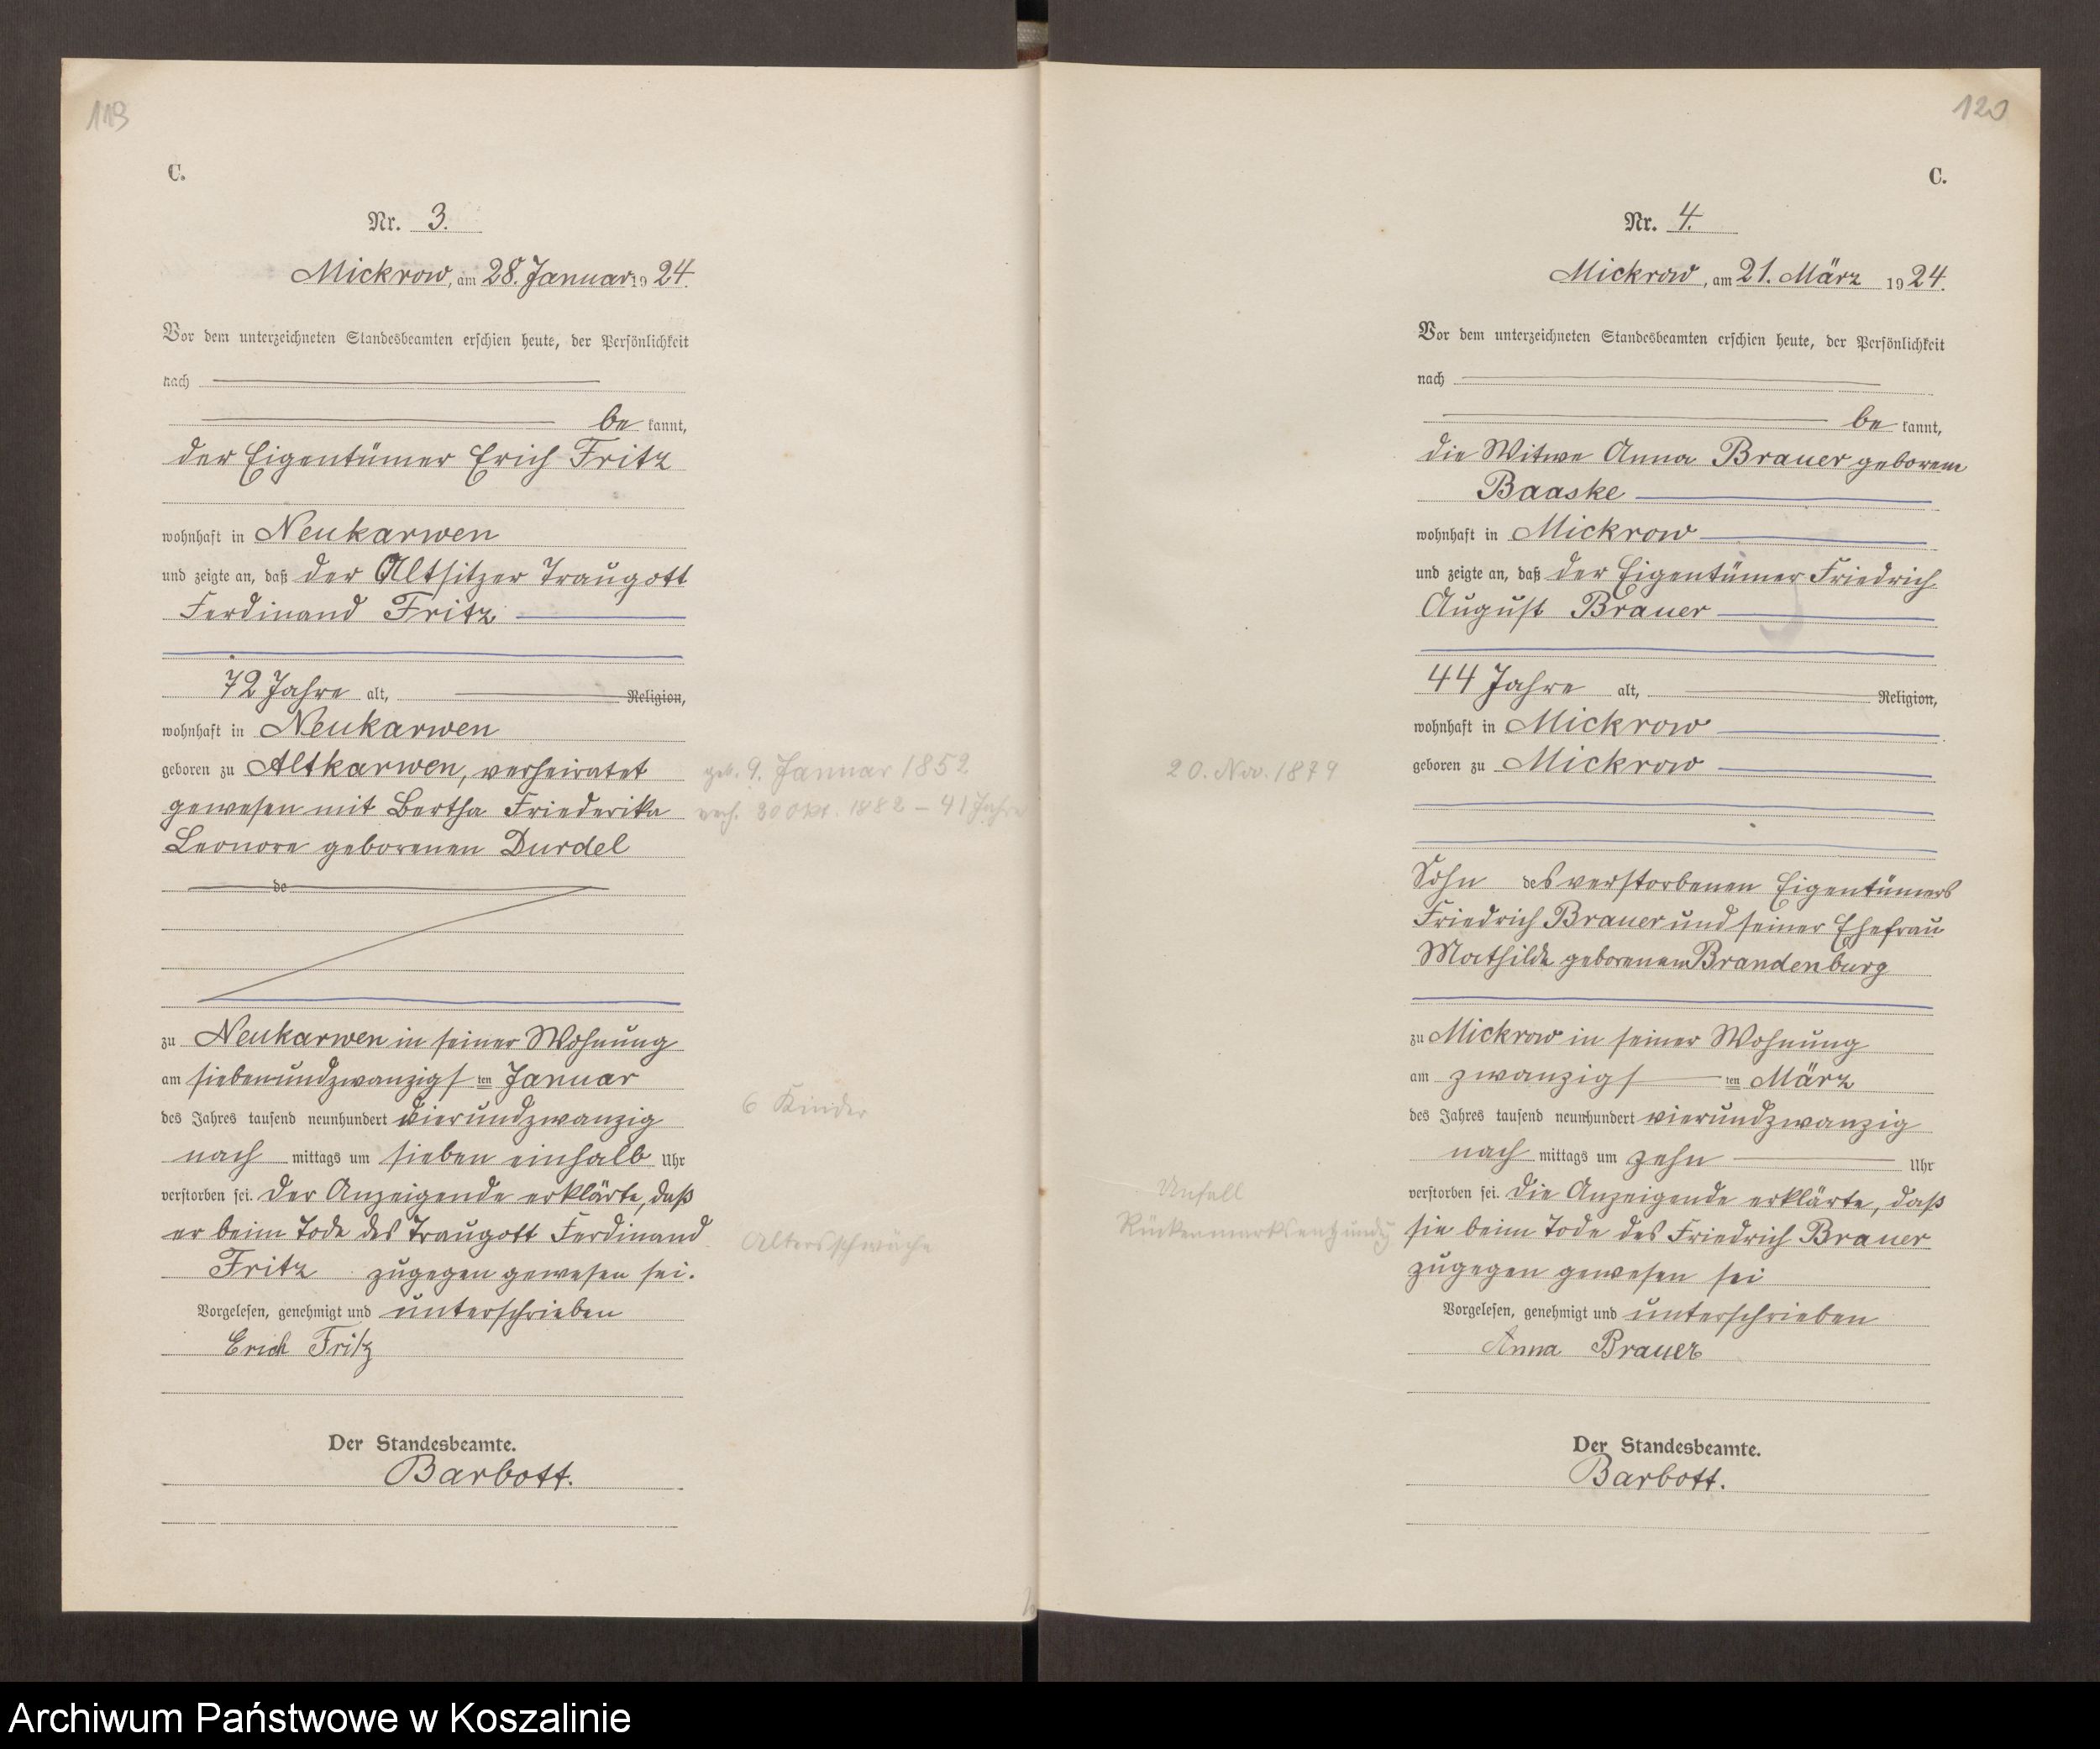 119
C.
Nr. 3.
Mickrow, am 28. Januar 1924.
Vor dem unterzeichneten Standesbeamten erschien heute, der Persönlichkeit
nach
be kannt,
der Eigentümer Erich Fritz
wohnhaft in Neukarwen
und zeigte an, daß der Altsitzer Traugott
Ferdinand Fritz
72 Jahre alt, Religion,
wohnhaft in Neukarwen
geboren zu Altkarwen, verheiratet
geb. 9. Januar 1852
gewesen mit Bertha Friederika
verh. 30 Okt. 1882 - 41 Jahre
Leonore geborenen Durdel
de
zu Neukarwen in seiner Wohnung
am siebenundzwanzigs ten Januar
6 Kinder
des Jahres tausend neunhundert vierundzwanzig
nach mittags um sieben einhalb Uhr
verstorben sei. Der Anzeigende erklärte, daß
er beim Tode des Traugott Ferdinand
Altersschwäche
Fritz zugegen gewesen sei.
Vorgelesen, genehmigt und unterschrieben
Erich Fritz
Der Standesbeamte.
Barbott.
120
C.
Nr. 4.
Mickrow, am 21. März 1924.
Vor dem unterzeichneten Standesbeamten erschien heute, der Persönlichkeit
nach
be kannt,
die Witwe Anna Brauer geborene
Baaske
wohnhaft in Mickrow
und zeigte an, daß der Eigentümer Friedrich
August Brauer
44 Jahre alt, Religion,
wohnhaft in Mickrow
geboren zu Mickrow
20. Nov. 1879
Sohn des verstorbenen Eigentümers
Friedrich Brauer und seiner Ehefrau
Mathilde geborenen Brandenburg
zu Mickrow in seiner Wohnung
am zwanzigs ten März
des Jahres tausend neunhundert vierundzwanzig
nach mittags um zehn Uhr
Unfall
verstorben sei. Die Anzeigende erklärte, daß
Rückenmarksentzündg
sie beim Tode des Friedrich Brauer
zugegen gewesen sei
Vorgelesen, genehmigt und unterschrieben
Anna Brauer
Der Standesbeamte.
Barbott.
Archiwum Państwowe w Koszalinie